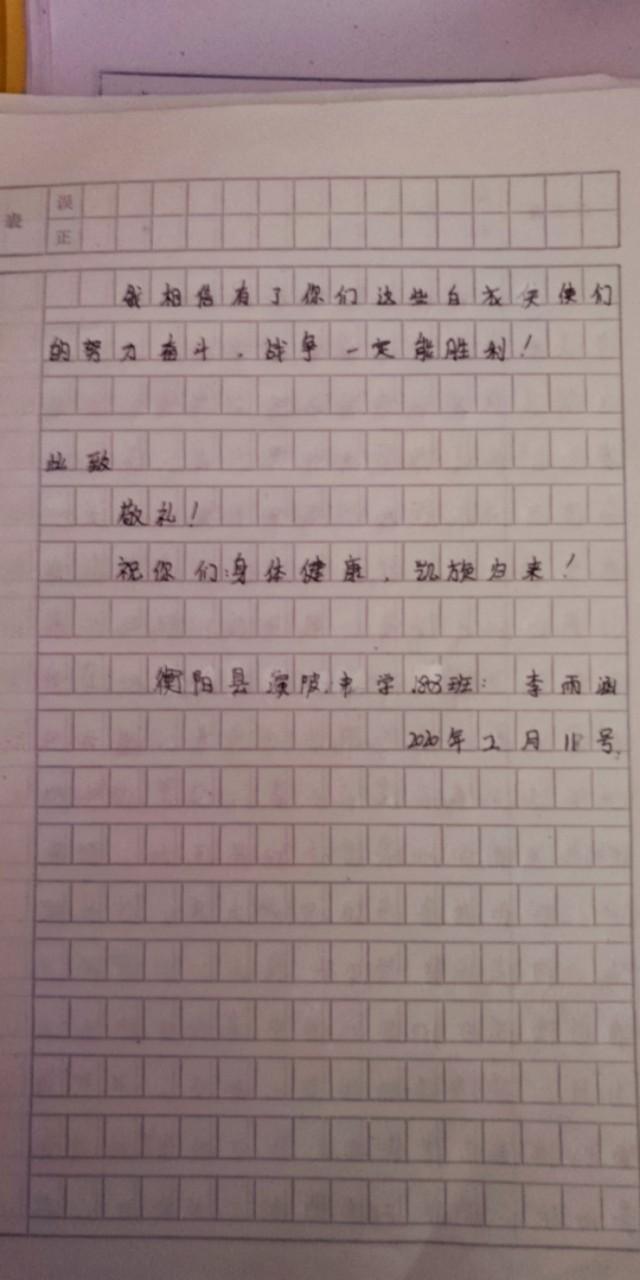 表
误
正
我相信有了你们这些白衣天使们
的努力奋斗，战争一定能胜利！
此致
敬礼！
祝你们身体健康，凯旋归来！
衡阳县演陂中学183班：李雨涵
2020年2月11号